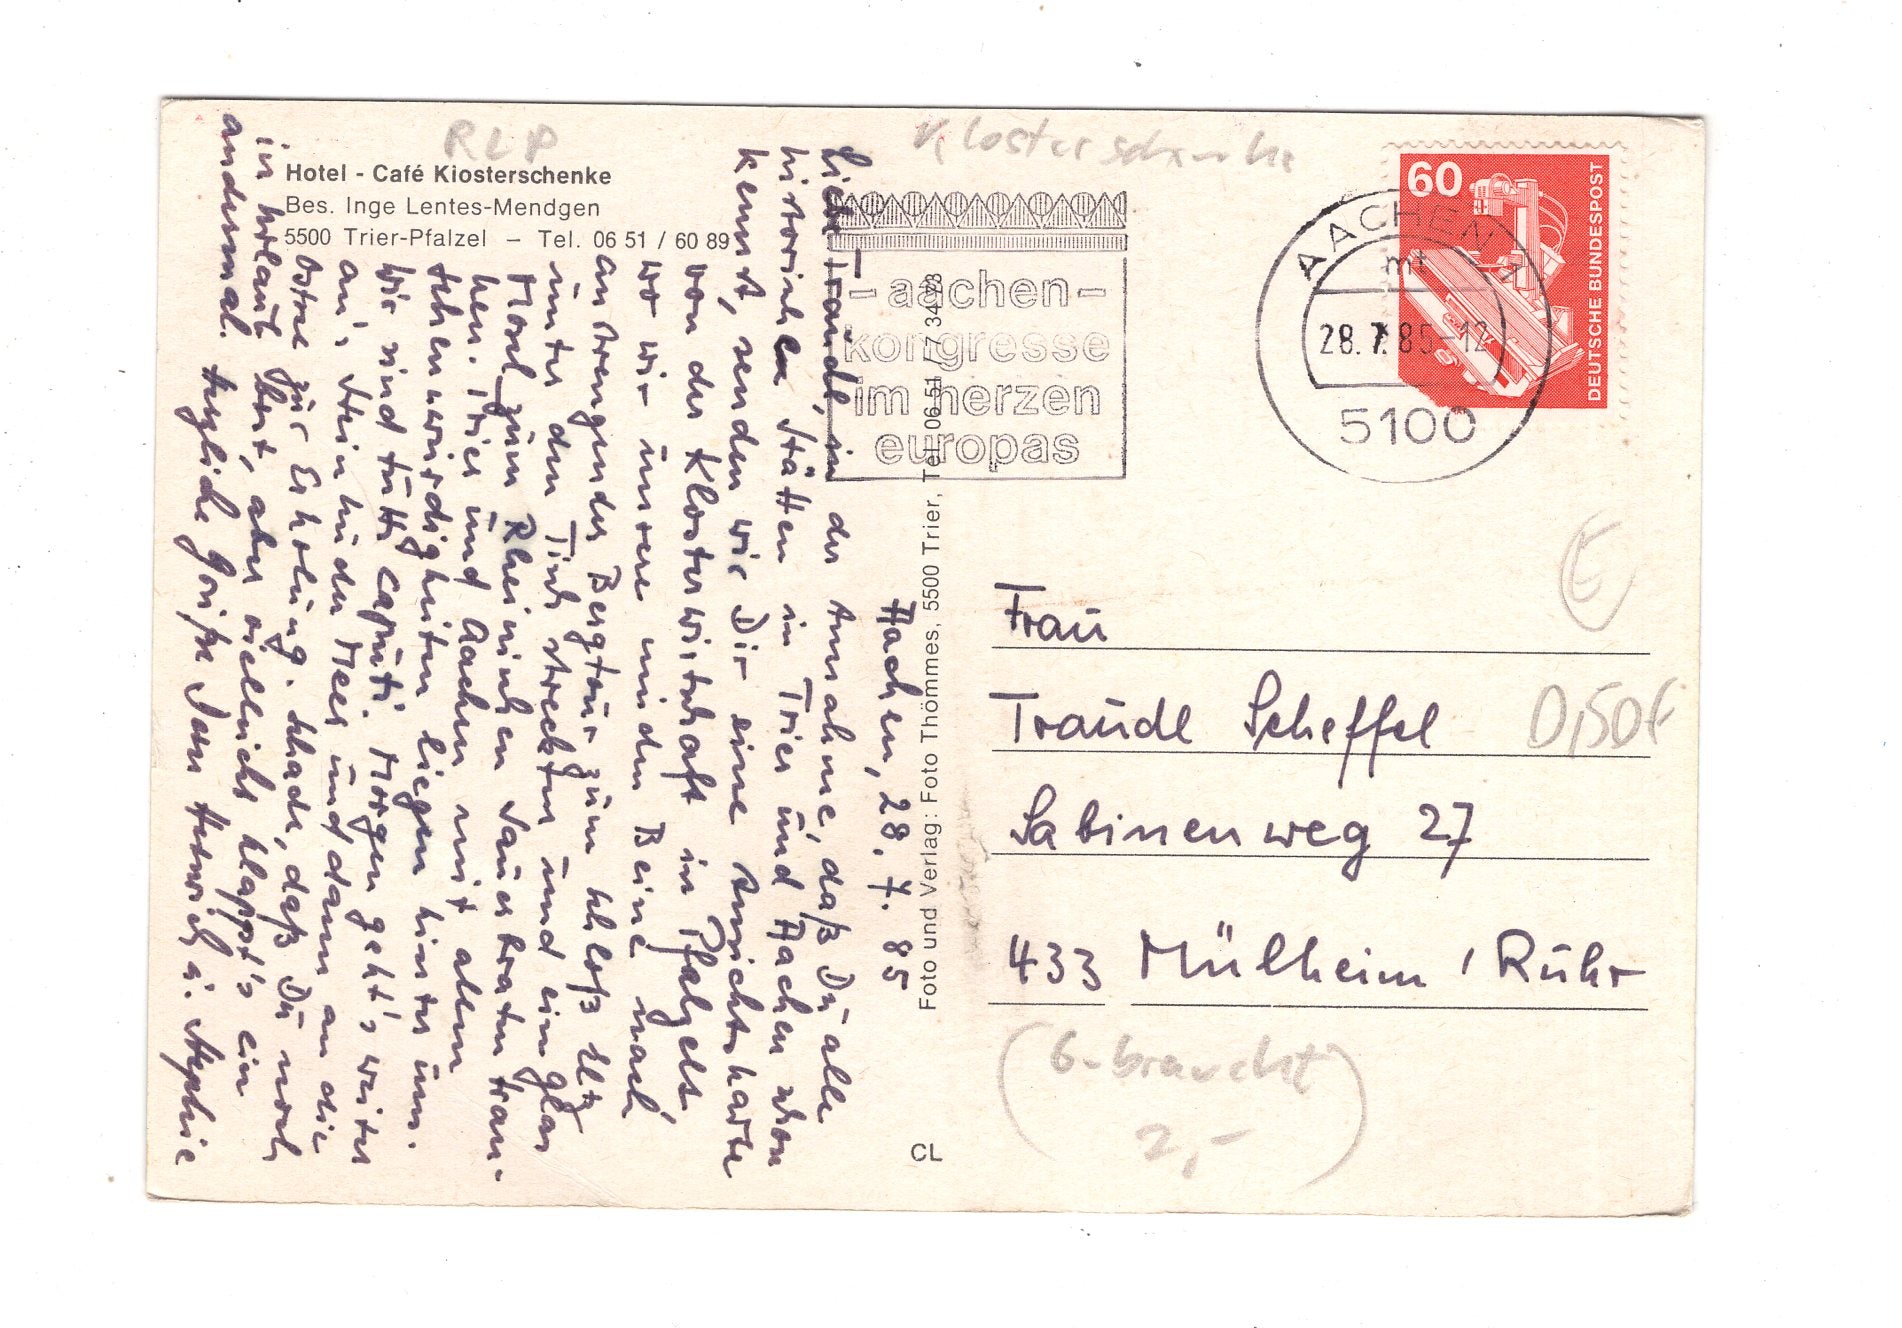 RLP
Klosterschenke
Hotel - Café Klosterschenke
Bes. Inge Lentes-Mendgen
5500 Trier-Pfalzel – Tel. 06 51 / 60 89
Aachen, 28. 7. 85
Liebe Traudl, in der Annahme, daß Du alle
historischen Stätten in Trier und Aachen schon
kennst, senden wir Dir eine Ansichtskarte
von der Klosterwirtschaft in Pfalzel,
wo wir unsere müden Beine nach
anstrengender Bergtour zum Schloß Eltz
unter den Tisch streckten und ein Glas
Mosel zum Rheinischen Sauerbraten tran-
ken. Trier und Aachen mit allen
Sehenswürdigkeiten liegen hinter uns.
Wir sind tutti caputti. Morgen geht's weiter
an's Steinhuder Meer und dann an die
Ostsee zur Erholung. Schade, daß Du noch
in Urlaub bist, aber vielleicht klappt's ein
andermal. Herzliche Grüße Dein Heinrich u. Sophie
Foto und Verlag: Foto Thömmes, 5500 Trier, Tel. 06 51 / 7 34 88
CL
– aachen –
kongresse
im herzen
europas
AACHEN 1
mt
28.7.85-12
5100
60
DEUTSCHE BUNDESPOST
Frau
Traudl Scheffel
Sabinenweg 27
433 Mülheim / Ruhr
0,50€
(G-braucht)
2,-